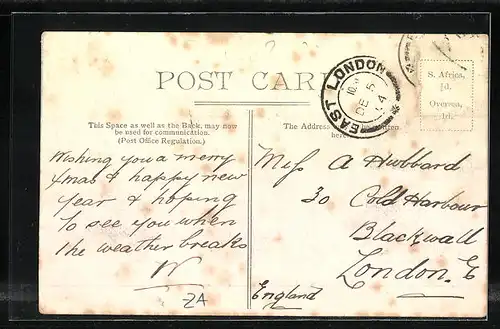 POST CARD
EAST LONDON
DE 5
S. Africa,
½d.
Oversea,
1d.
This Space as well as the Back, may now
be used for communication.
(Post Office Regulation.)
The Address
here.
Wishing you a merry
Xmas & happy new
year & hoping
to see you when
the weather breaks
W
ZA
Miss A Hubbard
30 Cold Harbour
Blackwall
London. E
England